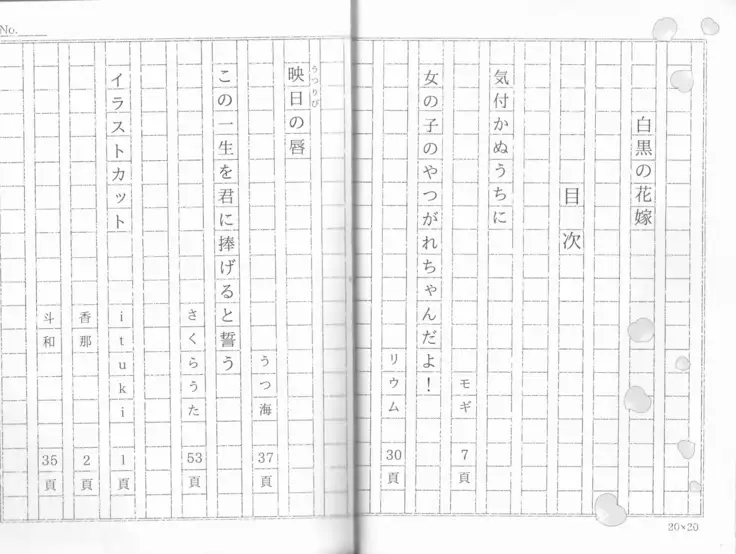 白黒の花嫁
目次
気付かぬうちに
モギ 7頁
女の子のやつがれちゃんだよ！
リウム 30頁
うつりび
映日の唇
うつ海 37頁
この一生を君に捧げると誓う
さくらうた 53頁
イラストカット
ituki 1頁
香那 2頁
斗和 35頁
No.
20×20